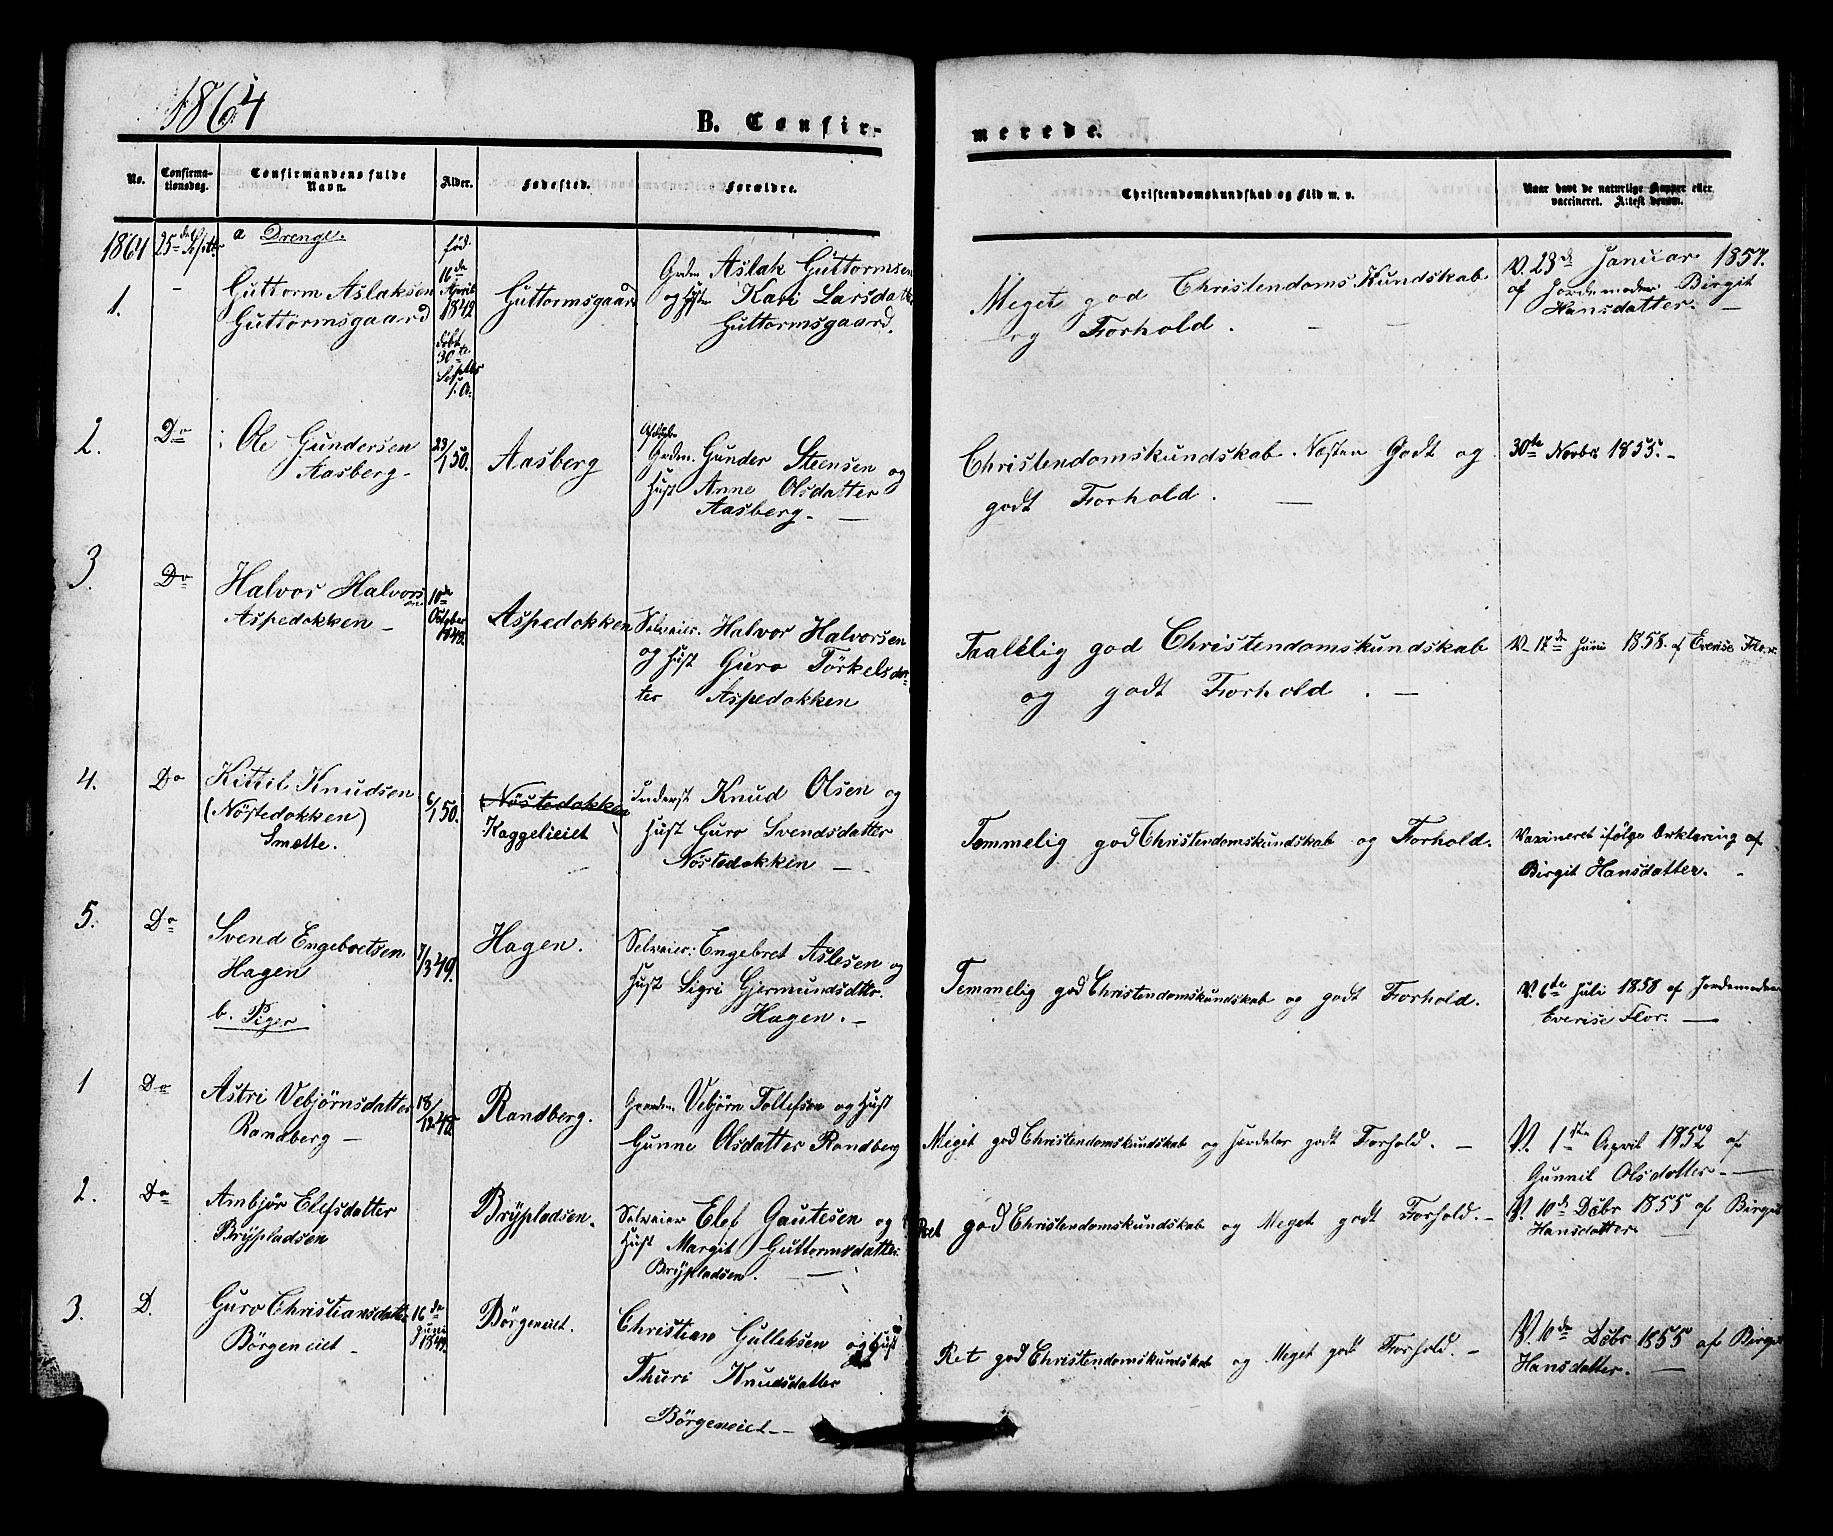 1864
B. Confirmerede.
No.
Confirma-
tionsdag.
Confirmandens fulde
Navn.
Alder.
Fødested.
Forældre.
Christendomskundskab og Flid m. v.
Naar havt de naturlige Kopper eller
vaccineret. Attest derom.
1864 25de Septbr.
a Drenge.
1.
-
Guttorm Aslaksen
Guttormsgaard
fød.
16de
April
1849
døbt
30te
Septbr
s. A.
Guttormsgaard
Grdm. Aslak Guttormsen
og Hust. Kari Larsdatter
Guttormsgaard.
Meget god Christendoms Kundskab
og Forhold. - -
V. 23de Januar 1857.
af Jordemoder Birgit
Hansdatter. -
2.
Do
Ole Gundersen
Aasberg -
23/1 50.
Aasberg
Grdm. Gunder Steensen og
Hust Anne Olsdatter
Aasberg. -
Christendomskundskab. Næsten Godt og
godt Forhold. -
30te Novbr 1855. -
3.
Do
Halvor Halvorsen
Aspedokken -
10de
October
1848.
Aspedokken
Selveier. Halvor Halvorsen
og Hust Guro Törkelsdat-
ter Aspedokken
Taalelig god Christendomskundskab
og godt Forhold. -
V. 17de Juni 1858. af Everise Flor.
4.
Do
Kittil Knudsen
(Nöstedokken)
Smette.
6/1 50.
Nöstedokken
Kaggelieiet
Inderst Knud Olsen og
Hust Guro Svendsdatter
Nöstedokken -
Temmelig god Christendomskundskab og Forhold.
Vaxineret ifölge Erklæring af
Birgit Hansdatter. -
5.
Do
Svend Engebretsen
Hagen
7/3 49.
Hagen.
Selveier: Engebret Aslesen og
Hust Sigri Gjermundsdtter.
Hagen. -
Temmelig god Christendomskundskab og godt Forhold.
V. 6te Juli 1858 af Jordemoder
Everise Flor. -
b. Piger
1
Do
Astri Vebjörnsdatter
Randberg -
18/12 48.
Randberg.
Gaardm. Vebjörn Tollefsen og Hust
Gunne Olsdatter Randberg
Megit god Christendomskundskab og særdeles godt Forhold. -
V. 1ste April 1852 af
Gunnil Olsdatter. -
2.
Do
Ambjör Elefsdatter
Brÿpladsen
Brÿpladsen.
Selveier Elef Gautesen og
Hust Margit Guttormsdatter.
Brÿpladsen. -
Ret god Christendomskundskab og Meget godt Forhold. -
V. 10de Dcbr 1855 af Birgit
Hansdatter. -
3.
D.
Guro Christiansdatter
Börgeneiet -
16de
Juni
1849.
Börgeneiet.
Christian Gulleksen og Hust
Thuri Knudsdatter
Börgeneiet - -
Ret god Christendomskundskab og Meget godt Forhold. -
V. 10de Dcbr 1855 af Birgit
Hansdatter. -